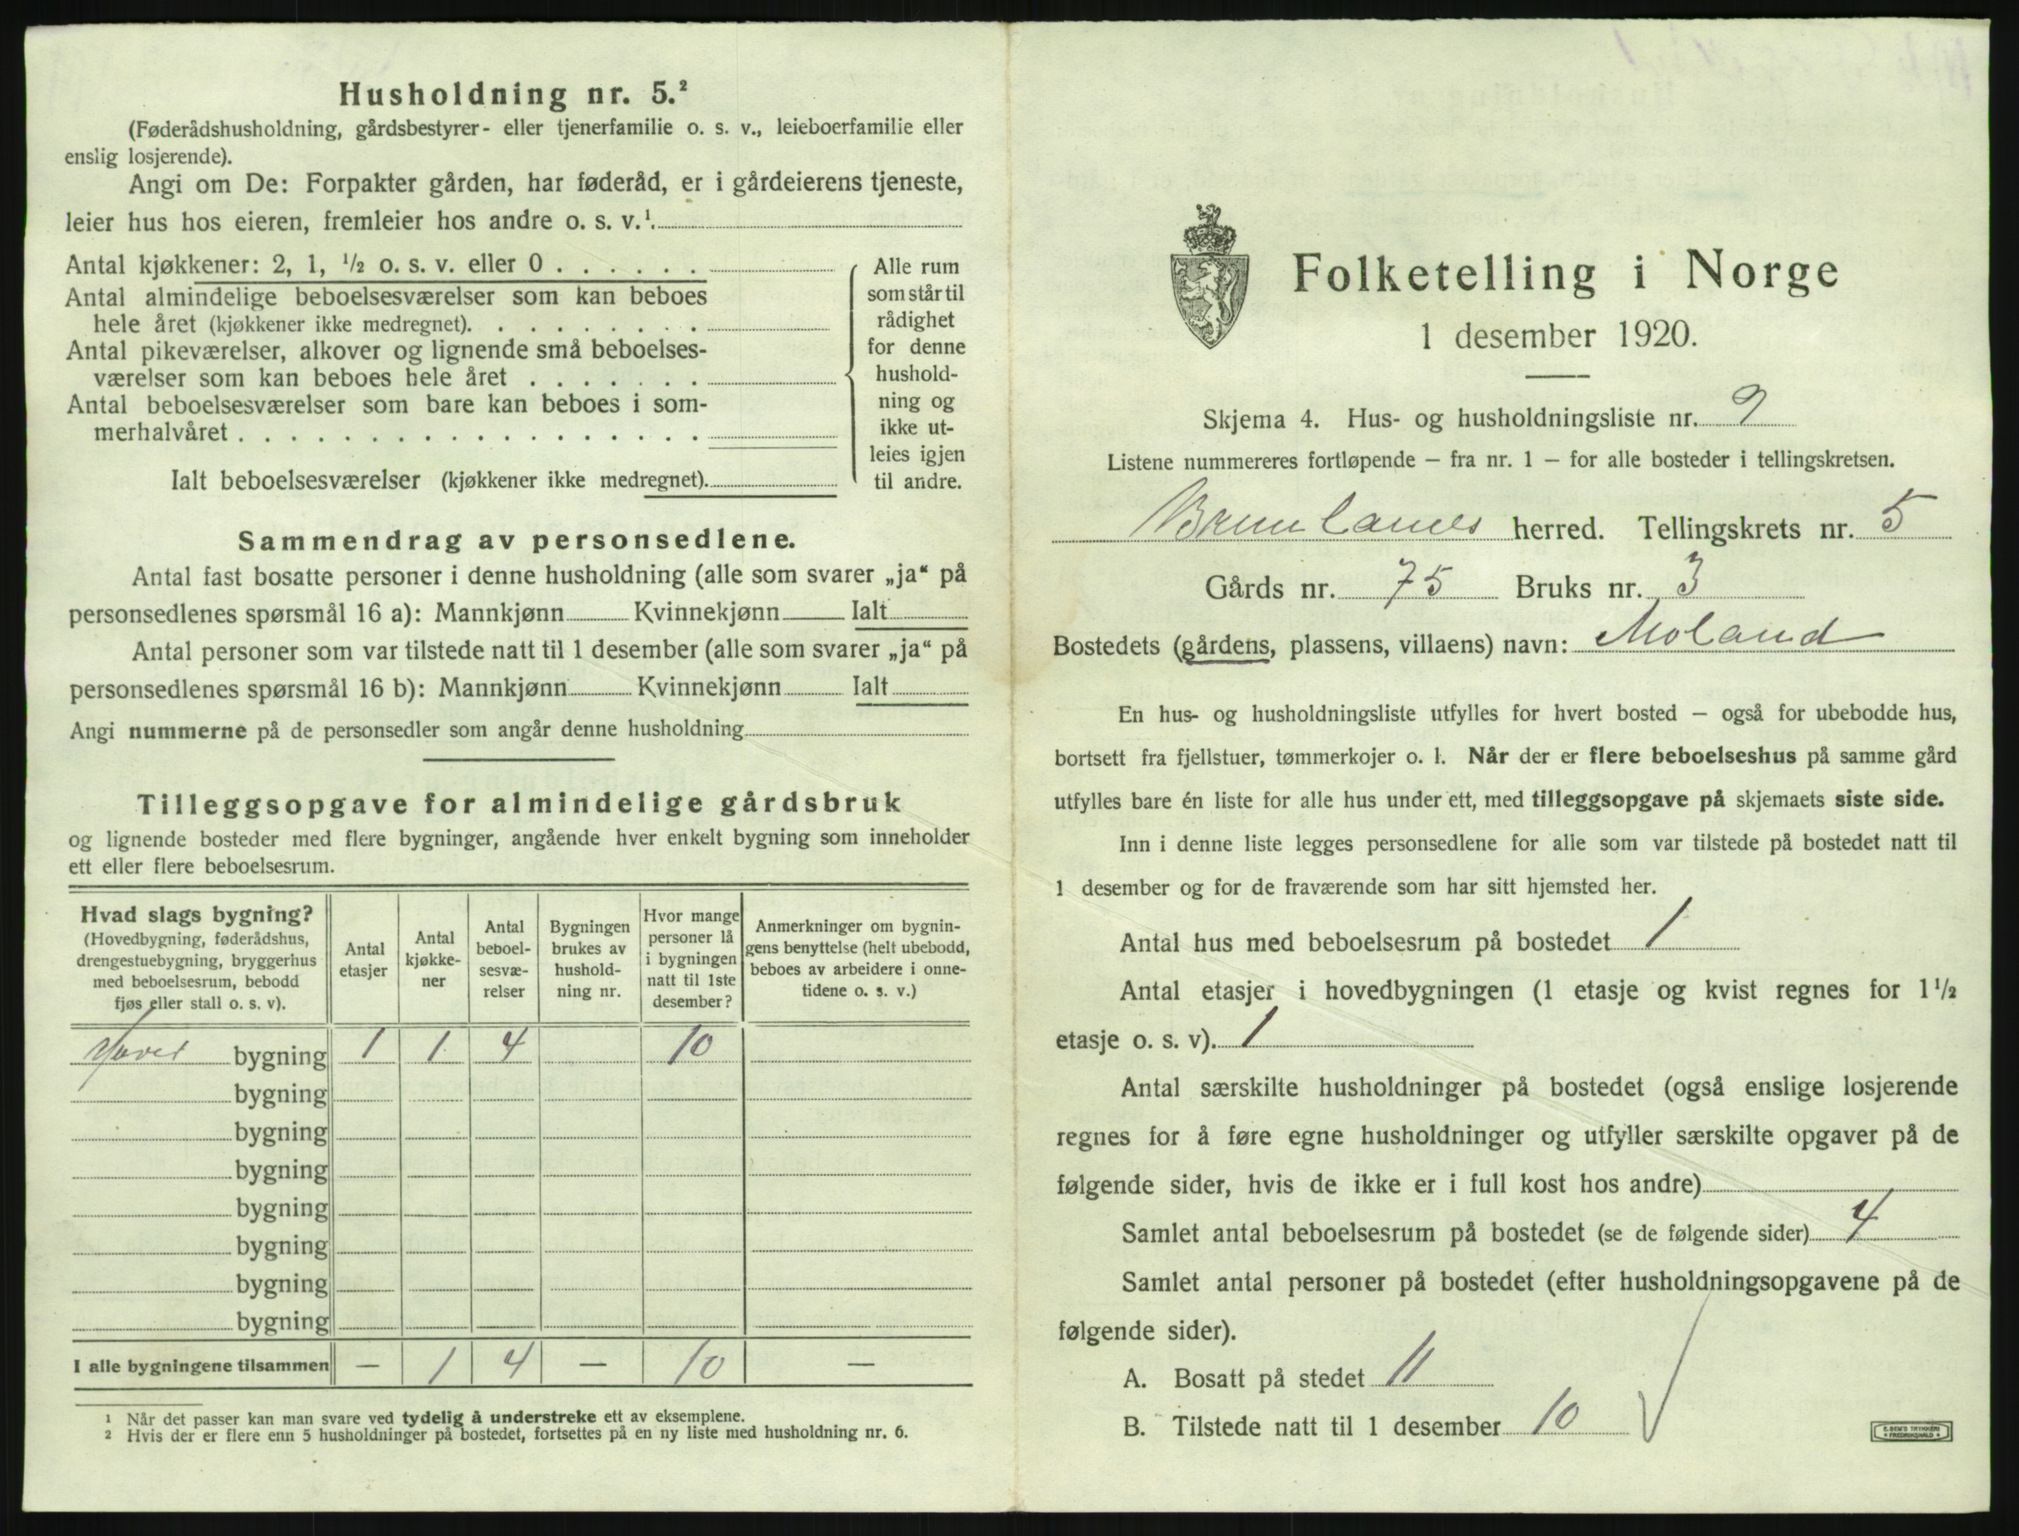 Husholdning nr. 5.²
(Føderådshusholdning, gårdsbestyrer- eller tjenerfamilie o. s. v., leieboerfamilie eller
enslig losjerende).
Angi om De: Forpakter gården, har føderåd, er i gårdeierens tjeneste,
leier hus hos eieren, fremleier hos andre o. s. v.¹.
Antal kjøkkener: 2, 1, ½ o. s. v. eller 0 . . . . . .
Antal almindelige beboelsesværelser som kan beboes
hele året (kjøkkener ikke medregnet). . . . . . . . . .
Antal pikeværelser, alkover og lignende små beboelses-
værelser som kan beboes hele året . . . . . . .
Antal beboelsesværelser som bare kan beboes i som-
merhalvåret . . . . . . . . . . . . . . . . . .
Ialt beboelsesværelser (kjøkkener ikke medregnet).
Alle rum
som står til
rådighet
for denne
hushold-
ning og
ikke ut-
leies igjen
til andre.
Sammendrag av personsedlene.
Antal fast bosatte personer i denne husholdning (alle som svarer „ja“ på
personsedlenes spørsmål 16 a): Mannkjønn Kvinnekjønn Ialt
Antal personer som var tilstede natt til 1 desember (alle som svarer „ja“ på
personsedlenes spørsmål 16 b): Mannkjønn Kvinnekjønn Ialt
Angi nummerne på de personsedler som angår denne husholdning
Tilleggsopgave for almindelige gårdsbruk
og lignende bosteder med flere bygninger, angående hver enkelt bygning som inneholder
ett eller flere beboelsesrum.
Hvad slags bygning?
(Hovedbygning, føderådshus,
drengestuebygning, bryggerhus
med beboelsesrum, bebodd
fjøs eller stall o. s. v).
Antal
etasjer
Antal
kjøkke-
ner
Antal
beboel-
sesvæ-
relser
Bygningen
brukes av
hushold-
ning nr.
Hvor mange
personer lå
i bygningen
natt til 1ste
desember?
Anmerkninger om bygnin-
gens benyttelse (helt ubebodd,
beboes av arbeidere i onne-
tidene o. s. v.)
Hoved bygning 1 1 4 10
bygning
bygning
bygning
bygning
bygning
bygning
bygning
I alle bygningene tilsammen — 1 4 — 10 —
¹ Når det passer kan man svare ved tydelig å understreke ett av eksemplene.
² Hvis der er flere enn 5 husholdninger på bostedet, fortsettes på en ny liste med husholdning nr. 6.
Folketelling i Norge
1 desember 1920.
Skjema 4. Hus- og husholdningsliste nr. 9
Listene nummereres fortløpende – fra nr. 1 – for alle bosteder i tellingskretsen.
Brunlanes herred. Tellingskrets nr. 5
Gårds nr. 75 Bruks nr. 3
Bostedets (gårdens, plassens, villaens) navn: Moland
En hus- og husholdningsliste utfylles for hvert bosted – også for ubebodde hus,
bortsett fra fjellstuer, tømmerkojer o. l. Når der er flere beboelseshus på samme gård
utfylles bare én liste for alle hus under ett, med tilleggsopgave på skjemaets siste side.
Inn i denne liste legges personsedlene for alle som var tilstede på bostedet natt til
1 desember og for de fraværende som har sitt hjemsted her.
Antal hus med beboelsesrum på bostedet 1
Antal etasjer i hovedbygningen (1 etasje og kvist regnes for 1½
etasje o. s. v). 1
Antal særskilte husholdninger på bostedet (også enslige losjerende
regnes for å føre egne husholdninger og utfyller særskilte opgaver på de
følgende sider, hvis de ikke er i full kost hos andre)
Samlet antal beboelsesrum på bostedet (se de følgende sider) 4
Samlet antal personer på bostedet (efter husholdningsopgavene på de
følgende sider).
A. Bosatt på stedet 11
B. Tilstede natt til 1 desember 10
E. SEM'S TRYKKERI
FREDRIKSHALD